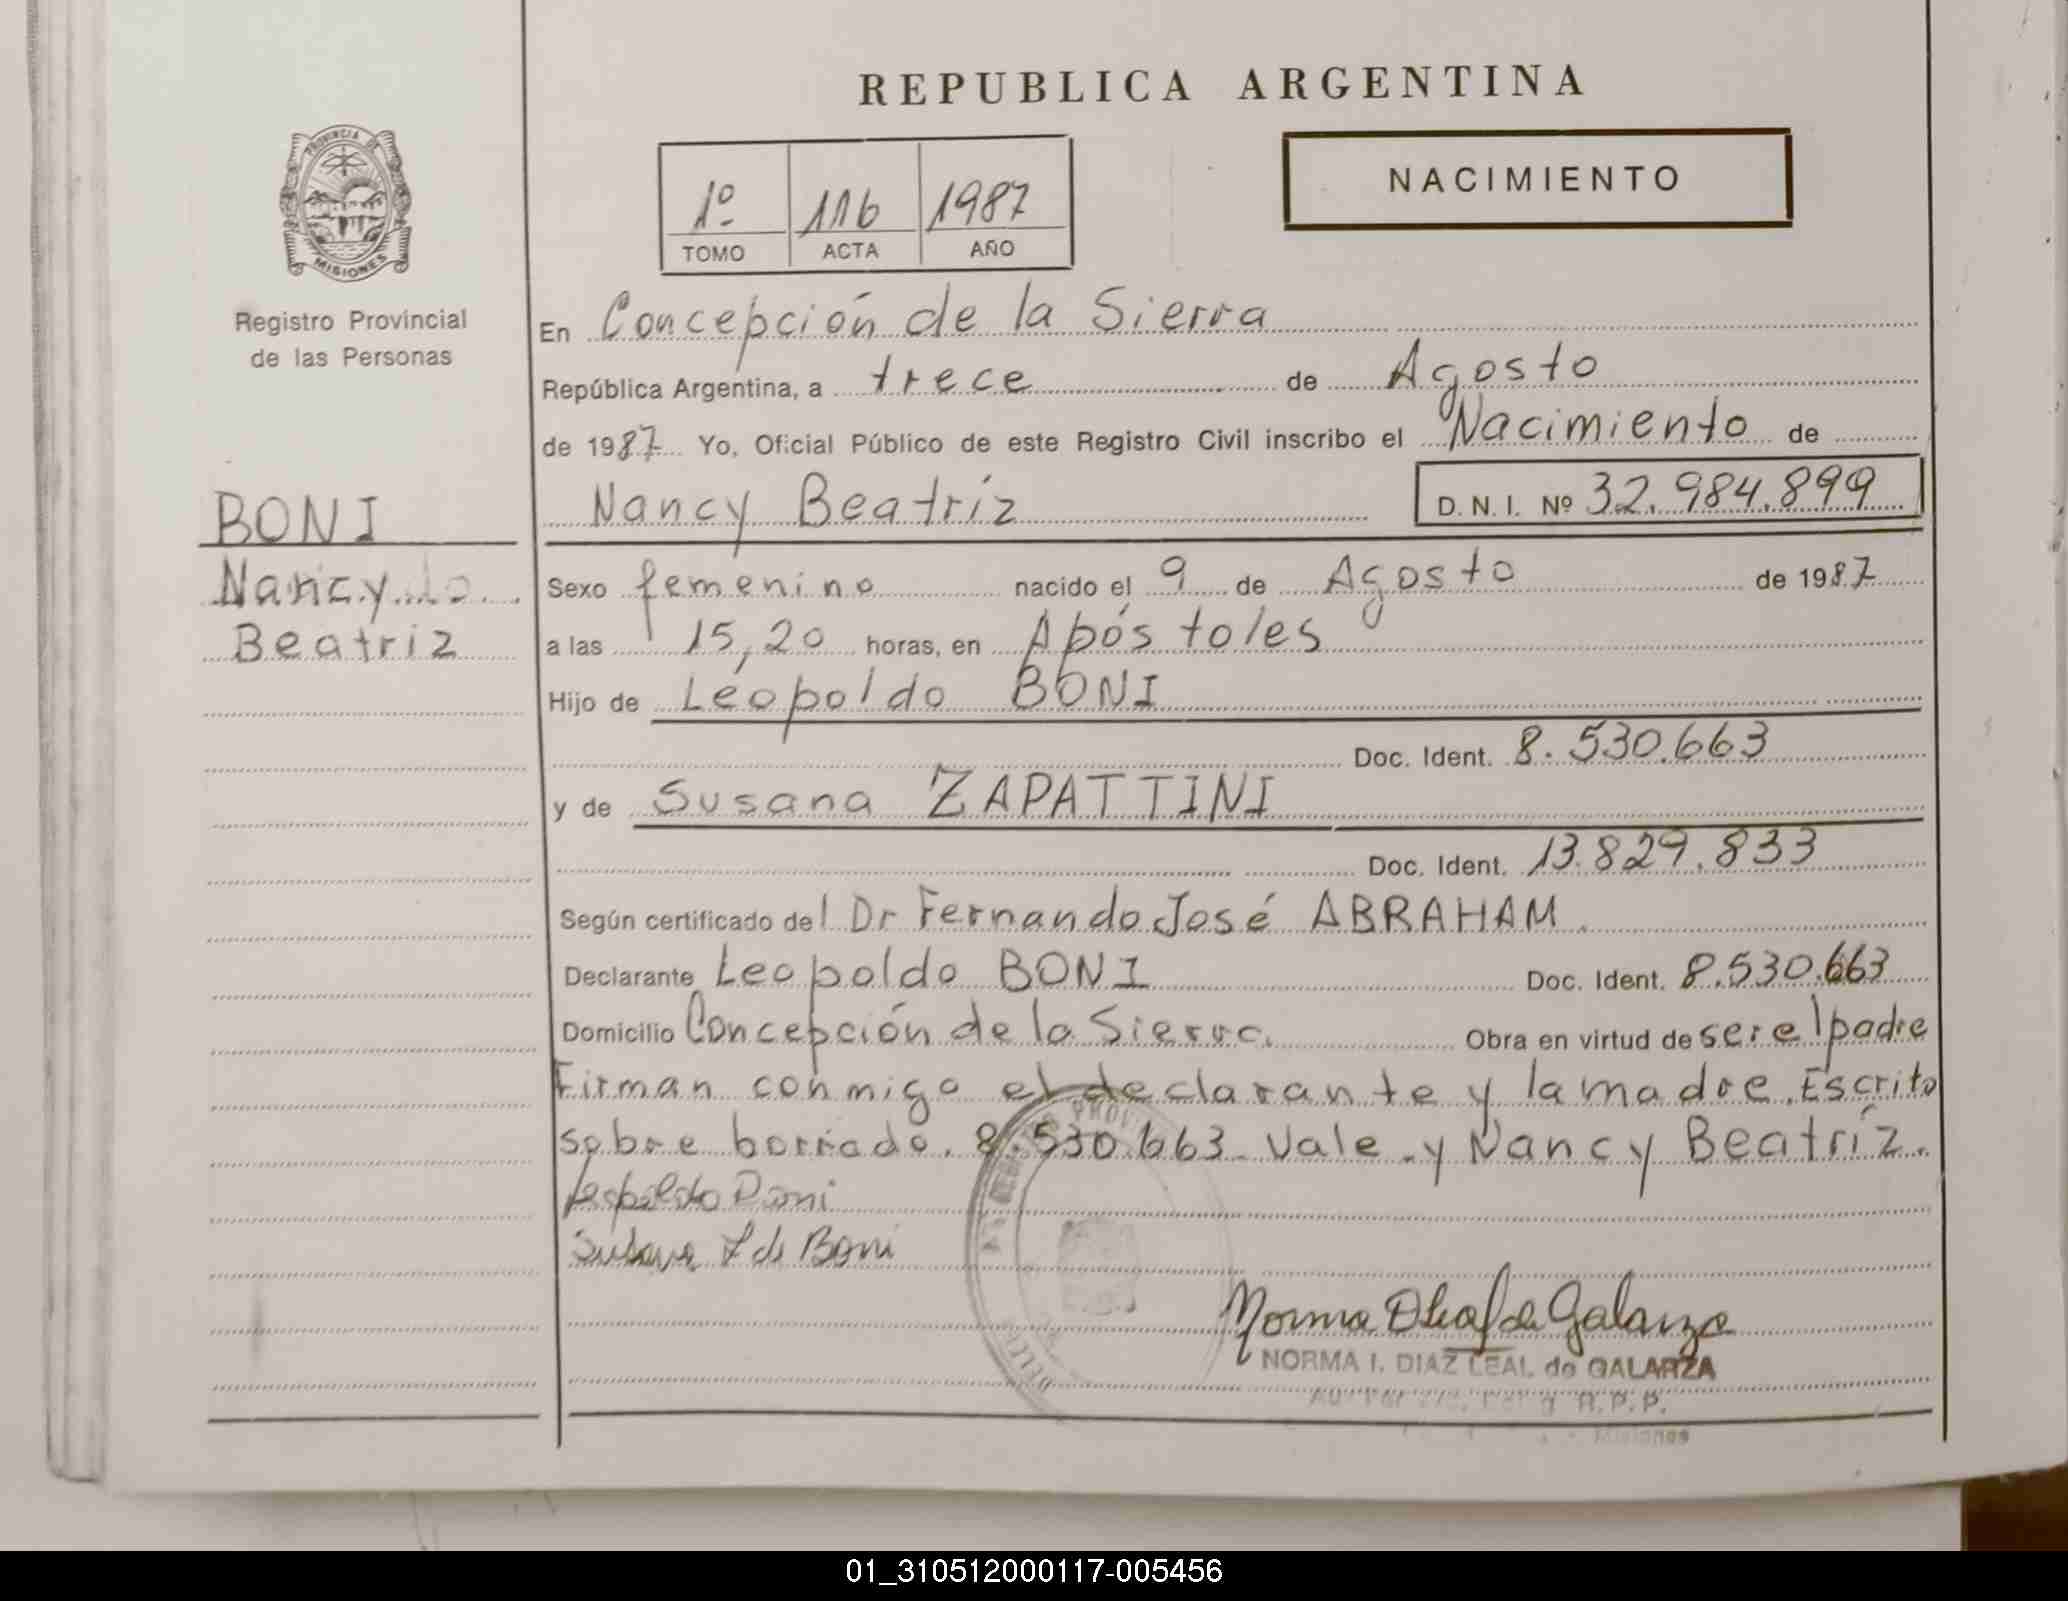 REPUBLICA ARGENTINA
PROVINCIA DE
MISIONES
Registro Provincial
de las Personas
1º 116 1987
TOMO ACTA AÑO
NACIMIENTO
En Concepción de la Sierra
República Argentina, a trece de Agosto
de 1987 Yo, Oficial Público de este Registro Civil inscribo el Nacimiento de
Nancy Beatríz D. N. I. Nº 32.984.899
BONI
Nancy
Beatriz
Sexo femenino nacido el 9 de Agosto de 1987
a las 15,20 horas, en Apóstoles
Hijo de Leopoldo BONI
Doc. Ident. 8.530.663
y de Susana ZAPATTINI
Doc. Ident. 13.829.833
Según certificado del Dr Fernando José ABRAHAM.
Declarante Leopoldo BONI Doc. Ident. 8.530.663
Domicilio Concepción de la Sierra. Obra en virtud de ser el padre
Firman conmigo el declarante y la madre. Escrito
sobre borrado. 8.530.663. Vale. y Nancy Beatríz.
Leopoldo Boni
Susana Z de Boni
Norma DLeal de Galarza
NORMA I. DIAZ LEAL de GALARZA
R. P. P.
Misiones
01_310512000117-005456